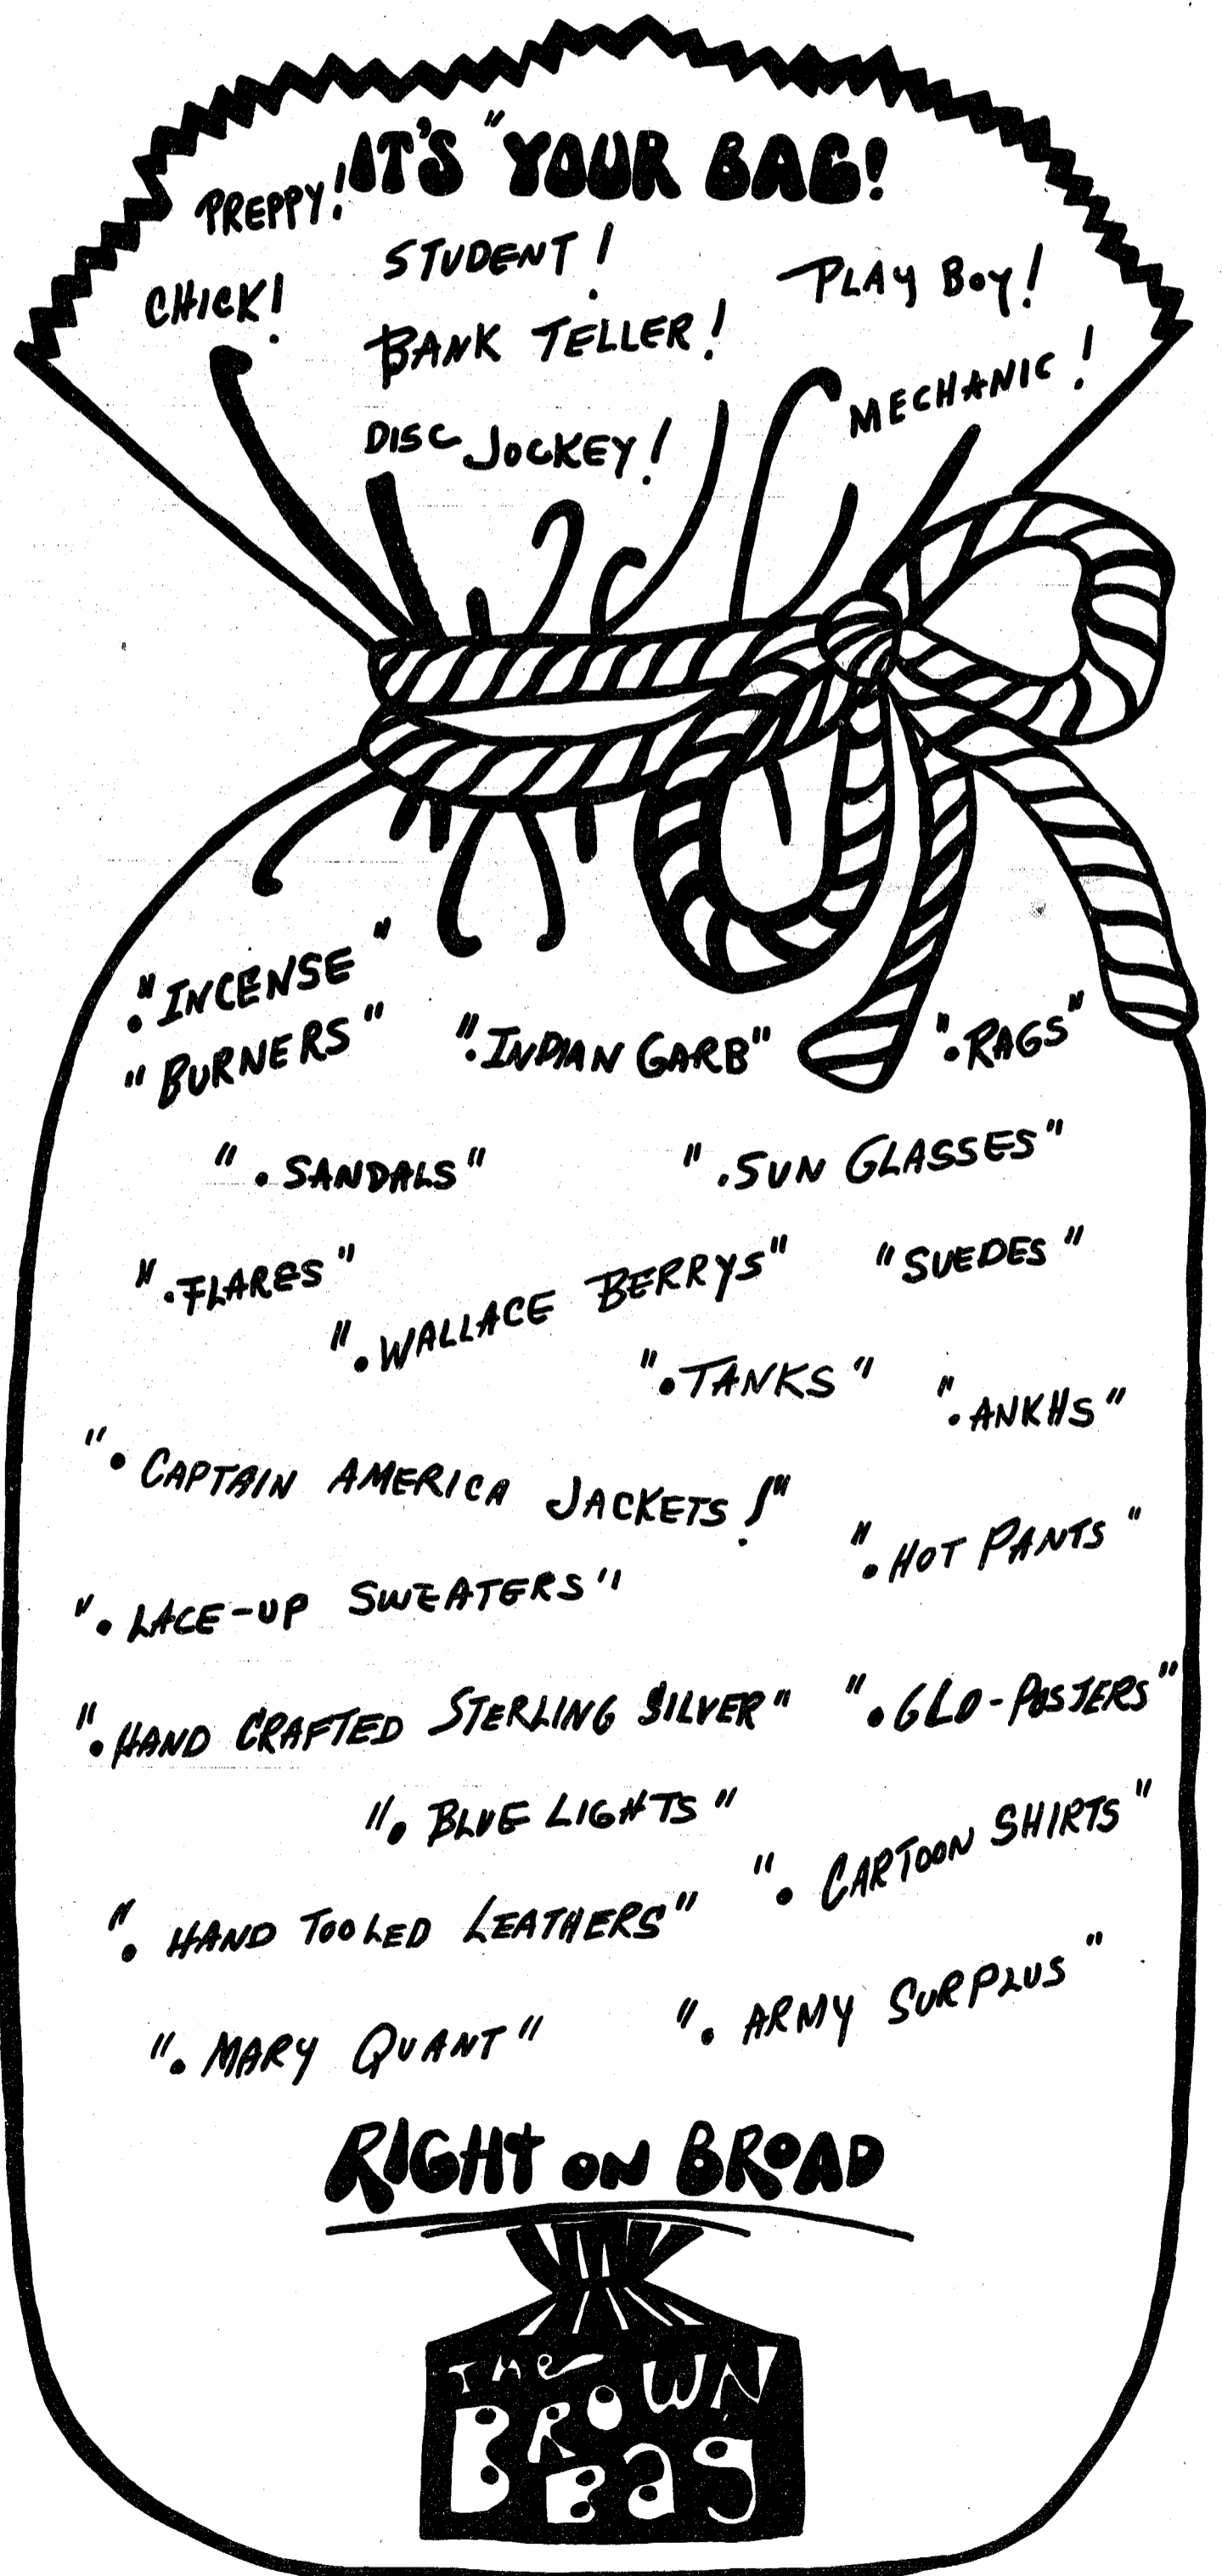 IT'S "YOUR BAG!
PREPPY!
STUDENT!
PLAY BOY!
CHICK!
BANK TELLER!
MECHANIC!
DISC JOCKEY!
". INCENSE"
"BURNERS"
". INDIAN GARB"
". RAGS"
". SANDALS"
". SUN GLASSES"
". FLARES"
". WALLACE BERRYS"
"SUEDES"
". TANKS"
". ANKHS"
". CAPTAIN AMERICA JACKETS!"
". HOT PANTS"
". LACE-UP SWEATERS"
". HAND CRAFTED STERLING SILVER"
". GLO-POSTERS"
". BLUE LIGHTS"
". CARTOON SHIRTS"
". HAND TOOLED LEATHERS"
". ARMY SURPLUS"
". MARY QUANT"
RIGHT ON BROAD
THE
BROWN
BAG